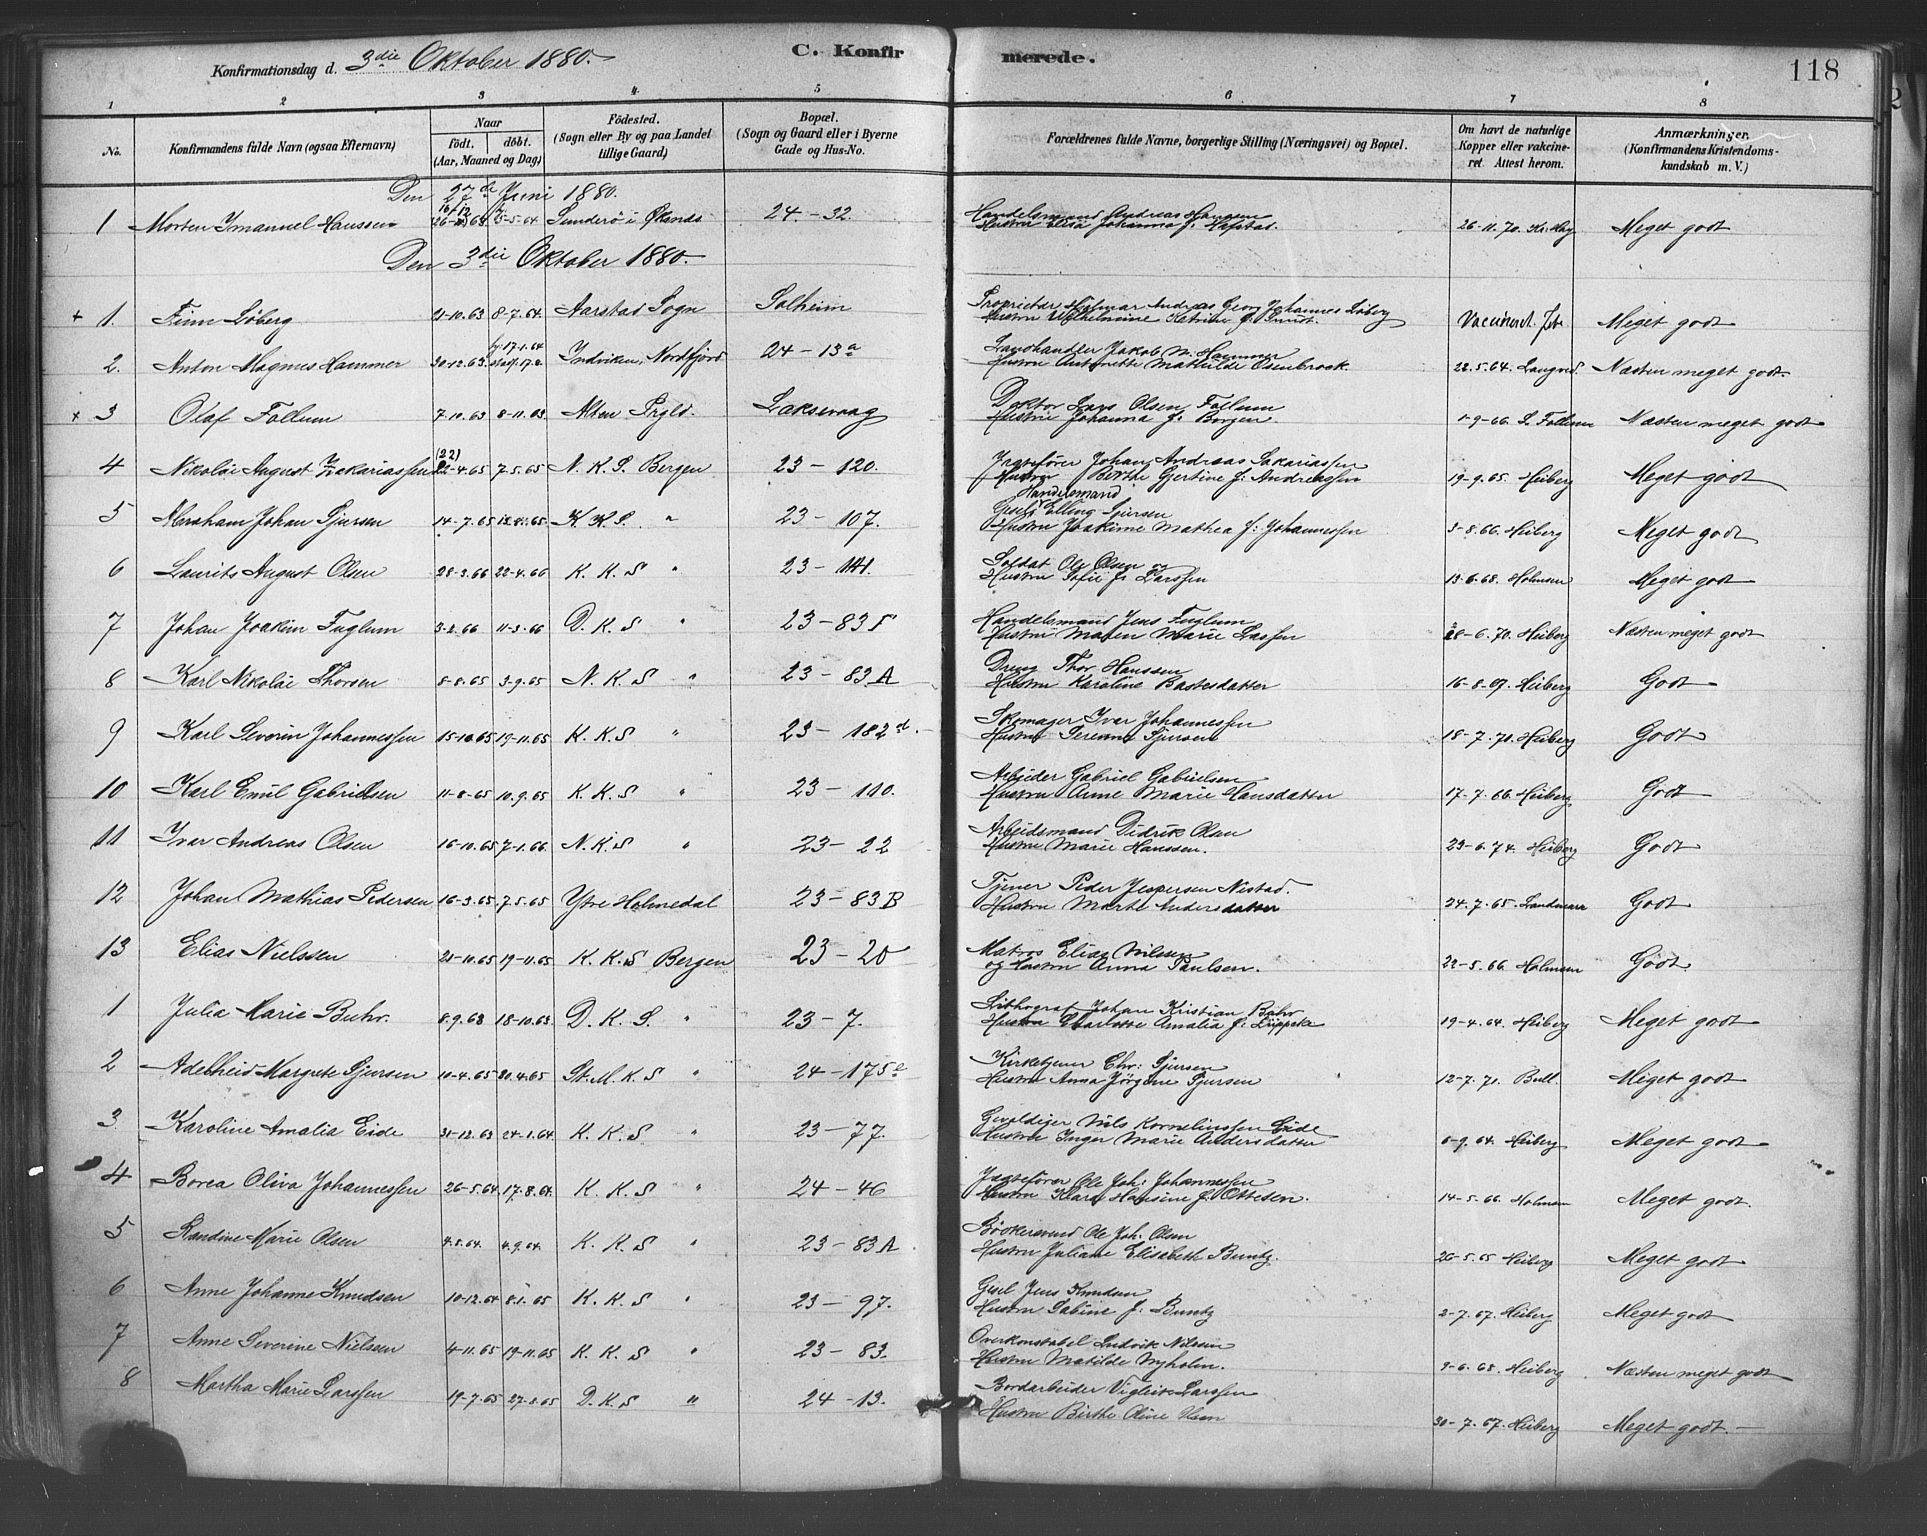 Konfirmationsdag d. 3die Oktober 1880. C. Konfirmerede. 118
1 2 3 4 5 6 7 8
No. Konfirmandens fulde Navn (ogsaa Efternavn) Naar födt. döbt. (Aar, Maaned og Dag) Födested. (Sogn eller By og paa Landet tillige Gaard) Bopæl. (Sogn og Gaard eller i Byerne Gade og Hus-No. Forældrenes fulde Navne, borgerlige Stilling (Næringsvei) og Bopæl. Om havt de naturlige Kopper eller vakcineret. Attest herom. Anmærkninger. (Konfirmandens Kristendomskundskab m. V.)
Den 27de Juni 1880.
1 Morten Imanuel Hanssen 5-5.64 Sunderö i 24-32 Handelsmand Andreas Hanssen
Hustru Elisa Johanna f. Hafstad. 26-11.70. Meget godt
Den 3die Oktober 1880.
+ 1. Finn Löberg 21-10.63 8-7.64. Aarstad Sogn Solheim Proprietær Hilmar Andreas Georg Johannes Löberg
Hustru Wilhelmine Katrine f. Vaccineret Meget godt
2. Anton Magnus Hammer 30-12.63 17-1.64 Indviken, Nordfjord 24-13a Landhandler Jakob M. Hammer
Hustru Antonette Mathilde Osenbrock. 22.5.64. Næsten meget godt.
+ 3 Olaf Follum 7-10.63 8-11.63 Alten Prgld. Laksevaag Doktor Lars Olsen Follum
Hustru Johanna f. Borgen. 1-9-66. L. Follum Næsten meget godt
4 Nikolai August Zakariassen (22) 22-4.65 7.5.65 N. K. S. Bergen 23-120. Jagtefører Johan Andreas Sakariassen
Hustru Berthe Gjertine f. Andreassen 19-9.65. Heiberg Meget godt
5 Abraham Johan Sjursen 14-7.65 K. K. S. " 23-107. Handelsmand
Elling Sjursen
Hustru Joakime Mathea f. Johannessen 3-8.66. Heiberg Meget godt
6 Laurits August Olsen 28-3.66 22-4.66 K. K. S " 23-141. Soldat Ole Olsen og
Hustru Sofie f. Larssen 13-6.68. Holmsen Meget godt
7 Johan Joakim Fuglum 3-2.66 11-3.66 D. K. S " 23-83F Handelsmand Jens Fuglum
Hustru Maren Marie Lassen 28-6.70. Heiberg Næsten meget godt
8 Karl Nikolai Thorsen 8-8.65 3-9.65 N. K. S " 23-83A Dreng Thor Hanssen
Hustru Karoline Bastesdatter 16-8.67. Heiberg Godt
9 Karl Severin Johannessen 15-10.65 19-11.65 K. K. S " 23-182d. Skomager Ivar Johannessen
Hustru Serenna Sjursen 18-7.70. Heiberg Godt
10 Karl Emil Gabrielsen 11-8.65 10.9.65 K. K. S " 23-110. Arbeider Gabriel Gabrielsen
Hustru Anne Marie Hansdatter 17-7.66. Heiberg Godt
11 Ivar Andreas Olsen 16-10.65 7-1.66. N. K. S " 23-22 Arbeidsmand Didrik Olsen
Hustru Marie Hanssen. 23-6.74. Heiberg Godt
12 Johan Mathias Pedersen 16-3.65 7.5.65 Ytre Holmedal 23-83B Tjener Peder Jespersen Nestad.
Hustru Marte Andersdatter 24.7.65. Landmark Godt
13 Elias Nielssen 21-10.65 19-11.65 K. K. S Bergen 23-20 Matros Elias Nilssen
og Hustru Anna Paulsen. 22-5.66. Holmsen Godt
1 Julia Marie Buhr. 8.9.63 18-10.63. D. K. S. " 23-7. Lithograf Johan Kristian Bühr
Hustru Charlotte Amalia f. Lüppeke 19-4.64. Heiberg Meget godt
2 Adelheid Margrete Sjursen 10-4.65 30.4.65 St. M. K. S " 24-175e Kirketjener Chr. Sjursen
Hustru Anna Jörgine Sjursen 12-7.70. Bull. Meget godt
3 Karoline Amalia Eide 31-12.63 24-1.64. K. K. S " 23-77. Gevaldiger Nils Kornelinssen Eide
Hustru Inger Marie Andersdatter 6-9.64. Heiberg Meget godt
4 Borea Oliva Johannessen 26-5.64 17.8.64. K. K. S " 24-46 Jagtefører Ole Joh. Johannessen
Hustru Klara Hansine f. Ottesen. 14-5.66. Holmsen Meget godt.
5 Randine Marie Olsen 4.8.64. 4.9.64. K. K. S " 23-83A Bödkersvend Ole Joh. Olsen
Hustru Juliane Elisabeth Buntz. 26-5.65 Heiberg Meget godt
6 Anne Johanne Knudsen 10-12.64 8.1.65 K. K. S " 23-97. Gesel Jens Knudsen
Hustru Sabine f. Buntz 2-7.67. Heiberg Meget godt
7 Anne Severine Nielssen 4-11.65 19-11.65 K. K. S " 23-83. Overkonstabel Ludvik Nilssen
Hustru Matilde Nyholm. 9-6.68. Heiberg Næsten meget godt
8 Martha Marie Larssen 19-7.65 27-8.65 D. K. S " 24-13. Bordarbeider Vigleik Larssen
Hustru Birthe Oline 30-7.67. Heiberg Meget godt.